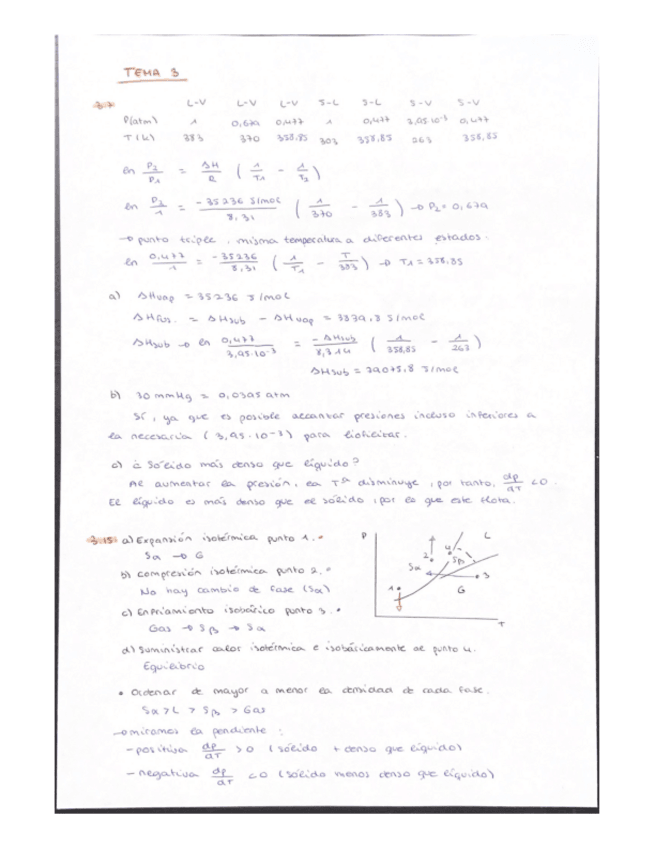 TEMA 3
3.7 L-V L-V L-V S-L S-L S-V S-V
P(atm) 1 0,679 0,477 1 0,477 3,95·10⁻³ 0,477
T(k) 383 370 358,85 303 358,85 263 358,85
ln P₂/P₁ = ΔH/R ( 1/T₁ - 1/T₂ )
ln P₂/1 = -35236 J/mol / 8,31 ( 1/370 - 1/383 ) → P₂ = 0,679
→ punto triple, misma temperatura a diferentes estados.
ln 0,477/1 = -35236/8,31 ( 1/T₁ - T/383 ) → T₁ = 358,85
a) ΔHvap = 35236 J/mol
ΔHfus. = ΔHsub - ΔHvap = 3839,8 J/mol
ΔHsub → ln 0,477/3,95·10⁻³ = -ΔHsub/8,314 ( 1/358,85 - 1/263 )
ΔHsub = 39075,8 J/mol
b) 30 mmHg = 0,0395 atm
Sí, ya que es posible alcanzar presiones incluso inferiores a
la necesaria (3,95·10⁻³) para liofilizar.
c) ¿Sólido más denso que líquido?
Al aumentar la presión, la Tª disminuye, por tanto, dp/dT <0.
El líquido es más denso que el sólido, por lo que este flota.
3.15 a) Expansión isotérmica punto 1.
Sα → G
b) compresión isotérmica punto 2.
No hay cambio de fase (Sα)
c) Enfriamiento isobárico punto 3.
Gas → Sβ → Sα
d) Suministrar calor isotérmica e isobáricamente al punto 4.
Equilibrio
P L 2 4 Sβ Sα 3 1 G T
• Ordenar de mayor a menor la densidad de cada fase.
Sα > L > Sβ > Gas
→ miramos la pendiente:
- positiva dp/dT >0 (sólido + denso que líquido)
- negativa dp/dT <0 (sólido menos denso que líquido)